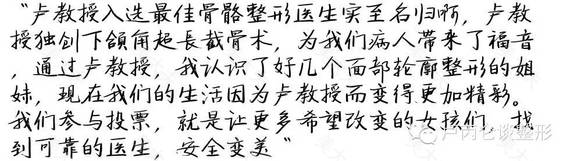 “卢教授入选最佳骨骼整形医生实至名归啊，卢教
授独创下颌角超长截骨术，为我们病人带来了福音
，通过卢教授，我认识了好几个面部轮廓整形的姐
妹，现在我们的生活因为卢教授而变得更加精彩。
我们参与投票，就是让更多希望改变的女孩们，找
到可靠的医生，安全变美”
卢丙仑谈整形